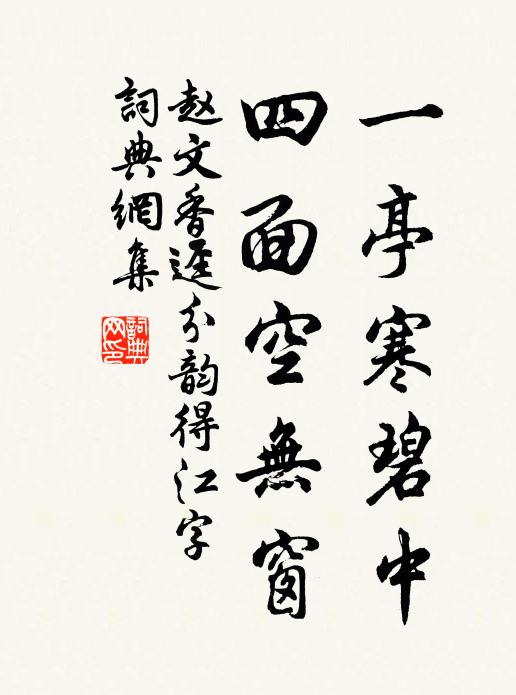 一亭寒碧中
四面空無窗
赵文香逕分韵得江字
詞典網集
詞典网印